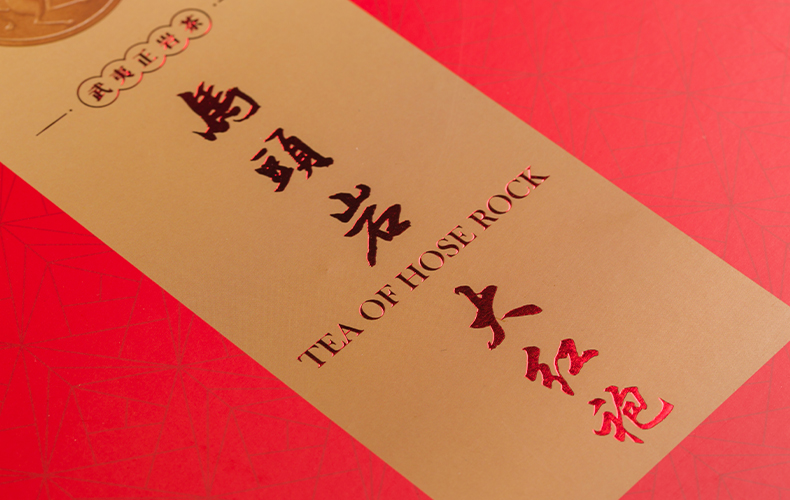 武夷正岩茶
馬頭岩
TEA OF HOSE ROCK
大红袍